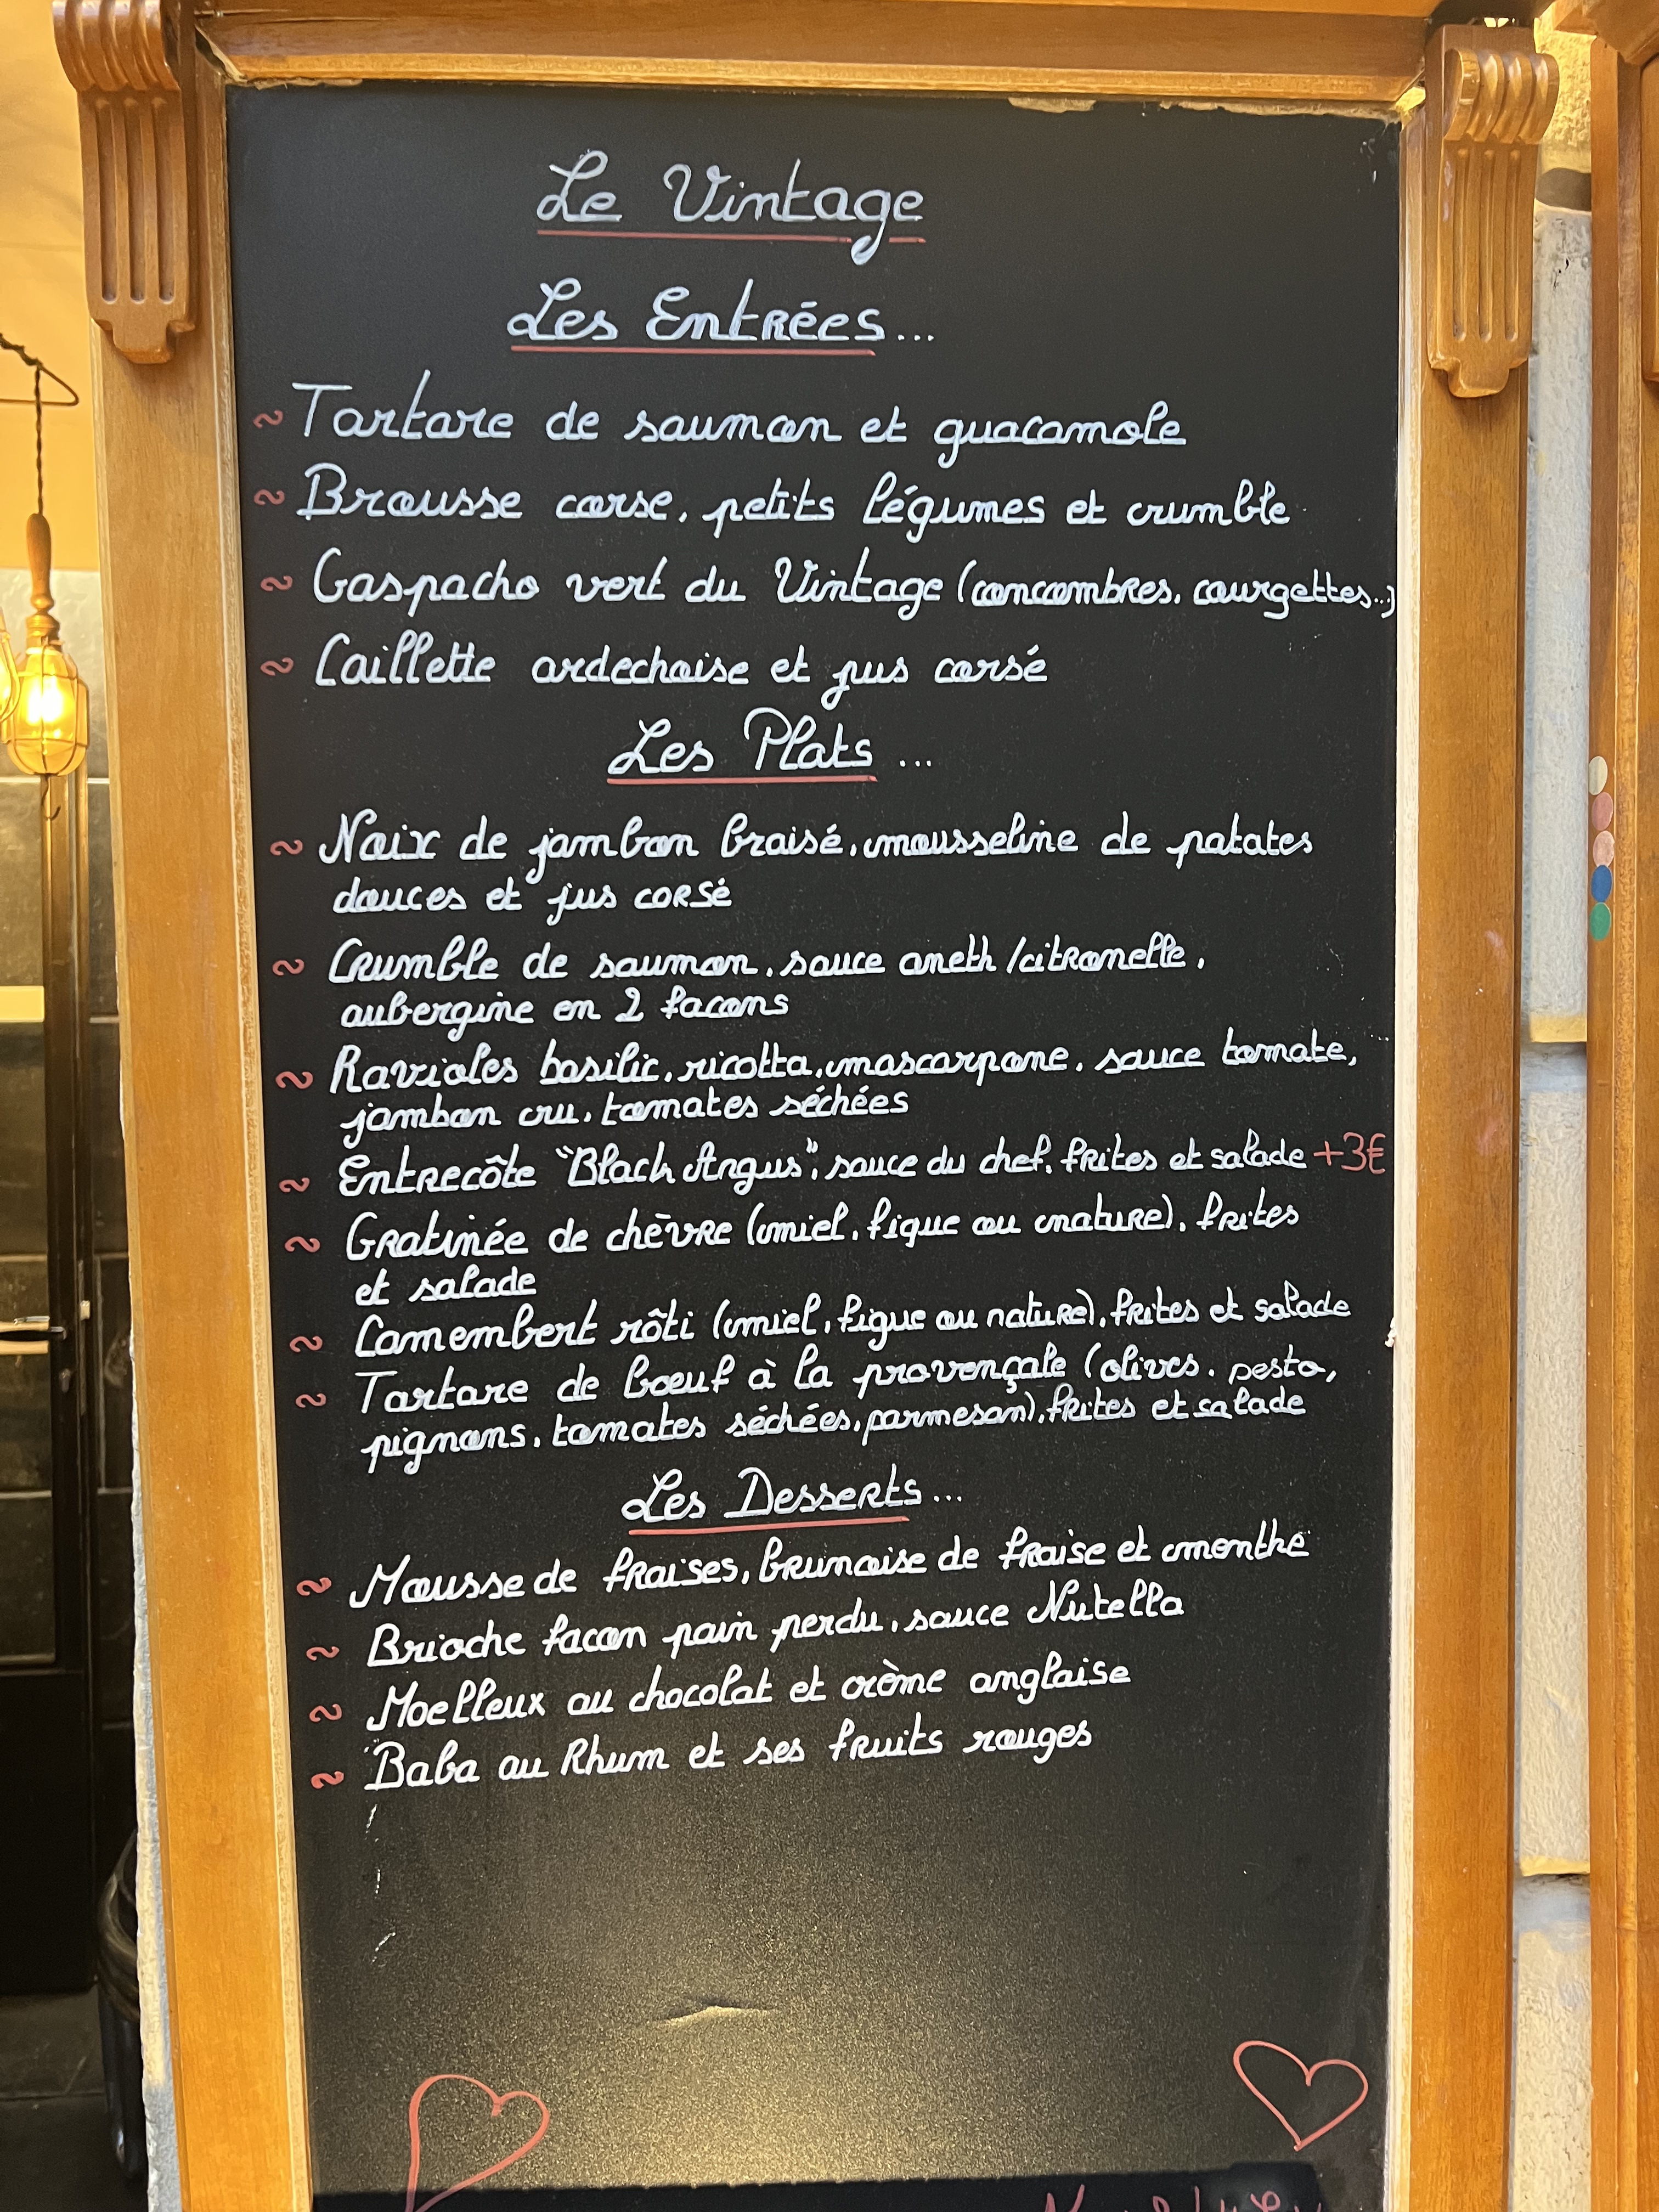 Le Vintage
Les Entrées...
~ Tartare de saumon et guacamole
~ Brousse corse, petits légumes et crumble
~ Gaspacho vert du Vintage (concombres, courgettes...)
~ Caillette ardechoise et jus corsé
Les Plats ...
~ Noix de jambon braisé, mousseline de patates
douces et jus corsé
~ Crumble de saumon, sauce aneth /citronelle,
aubergine en 2 facons
~ Ravioles basilic, ricotta, mascarpone, sauce tomate,
jambon cru, tomates séchées
~ Entrecôte "Black Angus", sauce du chef, frites et salade +3€
~ Gratinée de chèvre (miel, figue ou nature), frites
et salade
~ Camembert rôti (miel, figue ou nature), frites et salade
~ Tartare de boeuf à la provençale (olives, pesto,
pignons, tomates séchées, parmesan), frites et salade
Les Desserts...
~ Mousse de fraises, brunoise de fraise et menthe
~ Brioche facon pain perdu, sauce Nutella
~ Moelleux au chocolat et crème anglaise
~ Baba au Rhum et ses fruits rouges